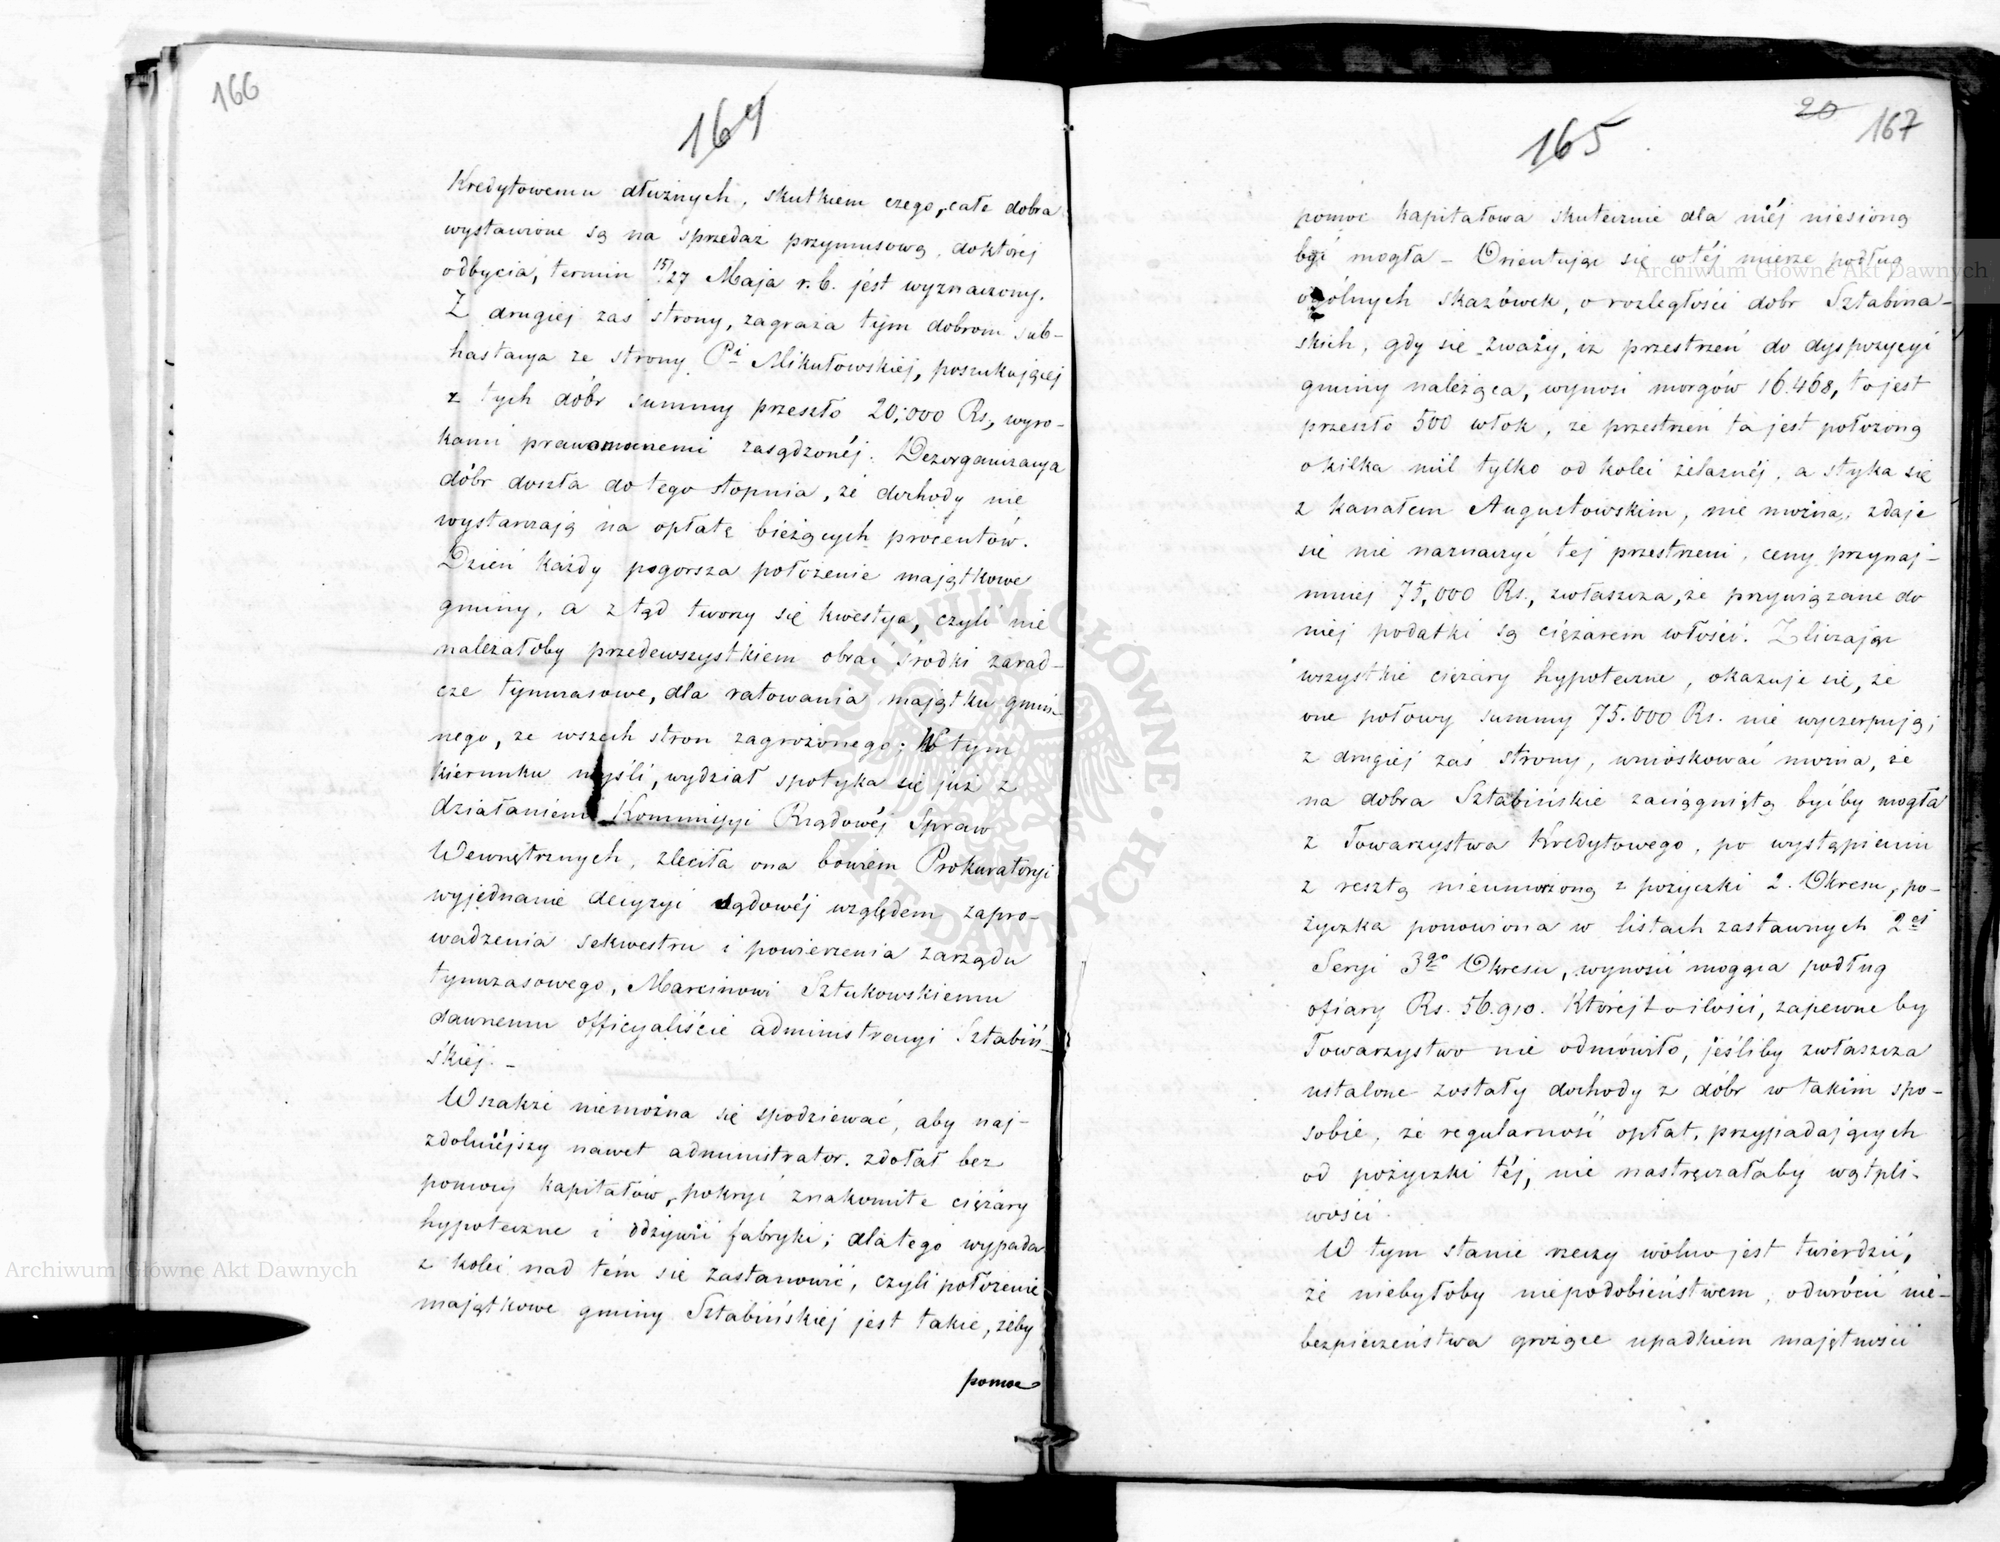 166
164
Kredytowemu dłużnych, skutkiem czego, całe dobra
wystawione są na sprzedaż przymusową, do której
odbycia, termin 15/27 Maja r. b. jest wyznaczony.
Z drugiej zaś strony, zagraża tym dobrom sub-
hastacya ze strony Pi Mikułowskiéj, poszukującej
z tych dóbr summy przeszło 20,000 Rs, wyro-
kami prawomocnemi zasądzonéj. Dezorganizacya
dóbr doszła do tego stopnia, że dochody nie
wystarczają na opłatę bieżących procentów.
Dzień każdy pogorsza położenie majątkowe
gminy, a ztąd tworzy się kwestya, czyli nie
należałoby przedewszystkiem obrać środki zarad-
cze tymczasowe, dla ratowania majątku gmin-
nego, ze wszech stron zagrożonego; W tym
kierunku myśli, wydział spotyka się już z
działaniem Kommissyi Rządowéj Spraw
Wewnętrznych, zleciła ona bowiem Prokuratoryi
wyjednanie decyzyi sądowéj względem zapro-
wadzenia sekwestru i powierzenia zarządu
tymczasowego, Marcinowi Sztukowskiemu
dawnemu officyaliście administracyi Sztabiń-
skiéj. -
Wszakże niemożna się spodziewać, aby naj-
zdolniéjszy nawet administrator. zdołał bez
pomocy kapitałów, pokryć znakomite ciężary
hypoteczne i odżywić fabryki; dlatego wypada
z kolei nad tém się zastanowić, czyli położenie
majątkowe gminy Sztabińskiej jest takie, żeby
pomoc
20 167
165
pomoc kapitałowa skutecznie dla niéj niesioną
być mogła - Orientując się w téj mierze podług
ogólnych skazówek, o rozległości dobr Sztabina-
skich, gdy się zważy, iż przestrzeń do dyspozycyi
gminy należąca, wynosi morgów 16.468, to jest
przeszło 500 włok, że przestrzeń ta jest położoną
o kilka mil tylko od kolei żelaznéj, a styka się
z kanałem Augustowskim, nie można, zdaje
się nie naznaczyć tej przestrzeni, ceny przynaj-
mniej 75,000 Rs., zwłaszcza, że przywiązane do
niej podatki są ciężarem włości. Zliczając
wszystkie ciężary hypoteczne, okazuje się, że
one połowy summy 75.000 Rs. nie wyczerpują;
z drugiej zaś strony, wnioskować można, że
na dobra Sztabińskie zaciągniętą byćby mogła
z Towarzystwa Kredytowego, po wystąpieniu
z resztą nieumorzoną z pożyczki 2. Okresu, po-
życzka ponowiona w listach zastawnych 2éj
Seryi 3go Okresu, wynosić mogąca podług
ofiary Rs. 56.910. Któréj to ilości, zapewne by
Towarzystwo nie odmówiło, jeśliby zwłaszcza
ustalone zostały dochody z dóbr w takim spo-
sobie, że regularność opłat, przypadających
od pożyczki téj, nie nastręczałaby wątpli-
wości.
W tym stanie rzeczy wolno jest twierdzić,
że niebyłoby niepodobieństwem, odwrócić nie-
bezpieczeństwa grożące upadkiem majętności